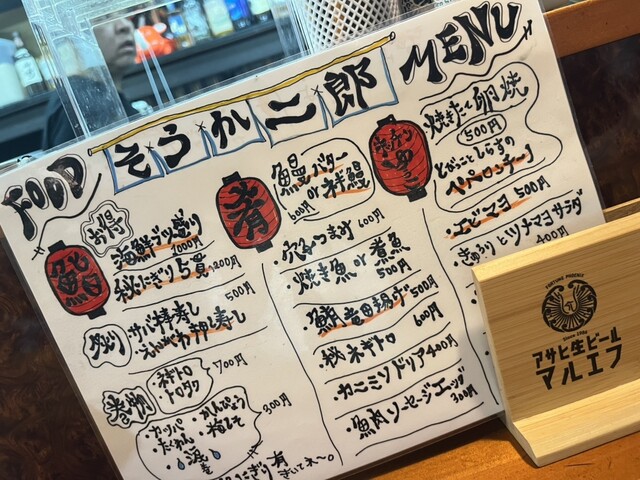 FOOD
そうか二郎
MENU
鮨
お得
海鮮ブツ盛り
1000円
秘にぎり5貫
500円
サバ棒寿し
えんがわ押し寿し
700円
巻物
ネギトロ
トロタク
300円
・カッパ
・かんぴょう
・梅しそ
・涙巻
にぎり有
きいてネ〜。
肴
鰻バター
or 半鰻
600円
・穴子つまみ 600円
・焼き魚 or 煮魚
500円
・鮪竜田揚げ 500円
・秘ネギトロ
600円
・カニミソドリア 400円
・魚肉ソーセージエッグ
300円
焼きたて卵焼
500円
しらすの
ペペロンチーノ
・エビマヨ 500円
・きゅうりとツナマヨサラダ
400円
FORTUNE PHOENIX
アサヒ生ビール
マルエフ